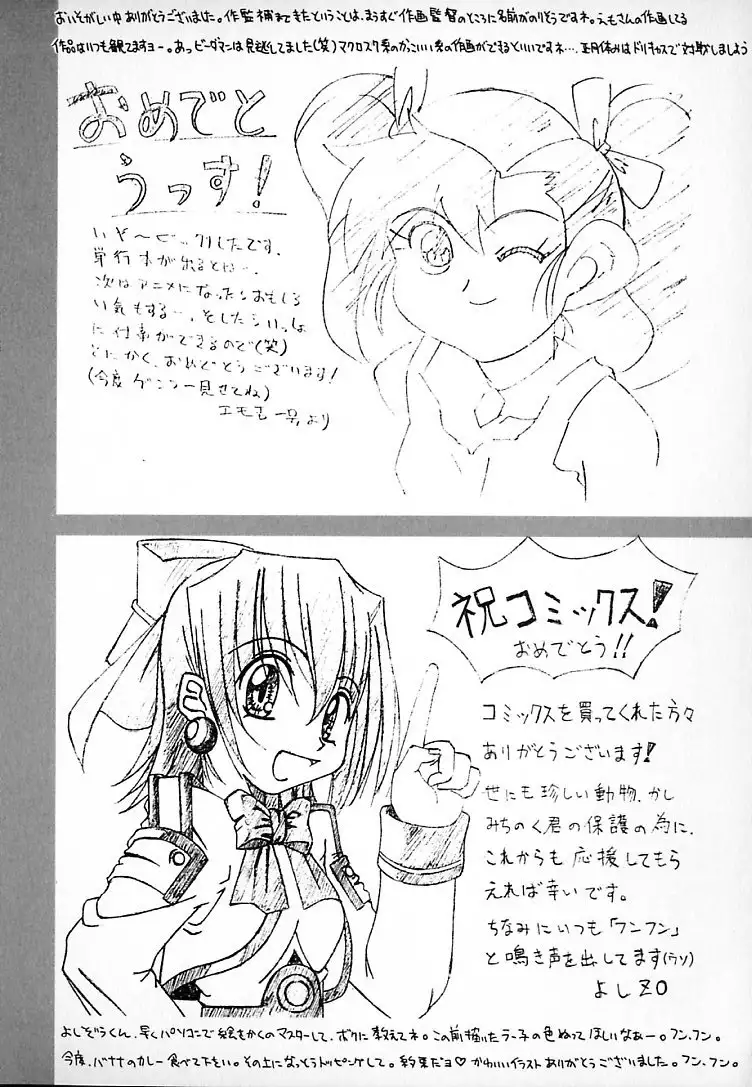 おいそがしい中ありがとうございました。作監補まできたということは、まうすぐ作画監督のところに名前がのりそうですネ。えもさんの作画してる
作品はいつも観てますヨー。あっビーダマンは見逃してました(笑)マクロスク系のかっこいい系の作画ができるといいですネ…。正月休みはドリキャスで対戦しましょう
おめでと
うっす!
いや〜ビックリしたです。
単行本が出るとは…。
次はアニメになったらおもしろ
い気もする…。そしたらいっしょ
に仕事ができるので(笑)
とにかく、おめでとうございます!
(今度ゲンコー見せてね)
エモ吉一号より
祝コミックス!
おめでとう!!
コミックスを買ってくれた方々
ありがとうございます!
世にも珍しい動物、かし
みちのく君の保護の為に、
これからも応援してもら
えれば幸いです。
ちなみにいつも「フンフン」
と鳴き声を出してます(ウソ)
よしZO
よしぞうくん、早くパソコンで絵をかくのマスターして、ボクに教えてネ。この前描いたラー子の色ぬってほしいなぁー。フン、フン。
今度、バナナのカレー食べて下さい。その上になっとうトッピングして。約束だヨ♡ かわいいイラストありがとうございました。フン、フン。